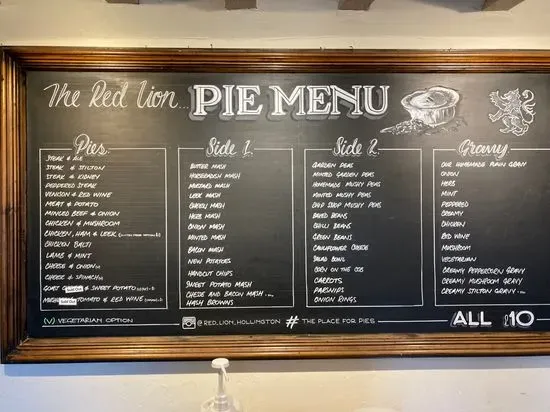 The Red Lion... PIE MENU
Pies
STEAK & ALE
STEAK & STILTON
STEAK & KIDNEY
PEPPERED STEAK
VENISON & RED WINE
MEAT & POTATO
MINCED BEEF & ONION
CHICKEN & MUSHROOM
CHICKEN, HAM & LEEK
CHICKEN BALTI
LAMB & MINT
CHEESE & ONION
CHEESE & SPINACH
GOAT & SWEET POTATO
TOMATO & RED WINE
(V) VEGETARIAN OPTION
Side 1
BUTTER MASH
HORSERADISH MASH
MUSTARD MASH
LEEK MASH
CHEESY MASH
HERB MASH
ONION MASH
MINTED MASH
BACON MASH
NEW POTATOES
HANDCUT CHIPS
SWEET POTATO MASH
CHEESE AND BACON MASH
HASH BROWNS
Side 2
GARDEN PEAS
MINTED GARDEN PEAS
HOMEMADE MUSHY PEAS
MINTED MUSHY PEAS
CHIP SHOP MUSHY PEAS
BAKED BEANS
CHILLI BEANS
GREEN BEANS
CAULIFLOWER CHEESE
SALAD BOWL
CORN ON THE COB
CARROTS
PARSNIPS
ONION RINGS
Gravy
OUR HOMEMADE MAIN GRAVY
ONION
HERB
MINT
PEPPERED
CREAMY
CHICKEN
RED WINE
MUSHROOM
VEGETARIAN
CREAMY PEPPERCORN GRAVY
CREAMY MUSHROOM GRAVY
CREAMY STILTON GRAVY
@RED_LION_HOLLINGTON # THE PLACE FOR PIES
ALL £10